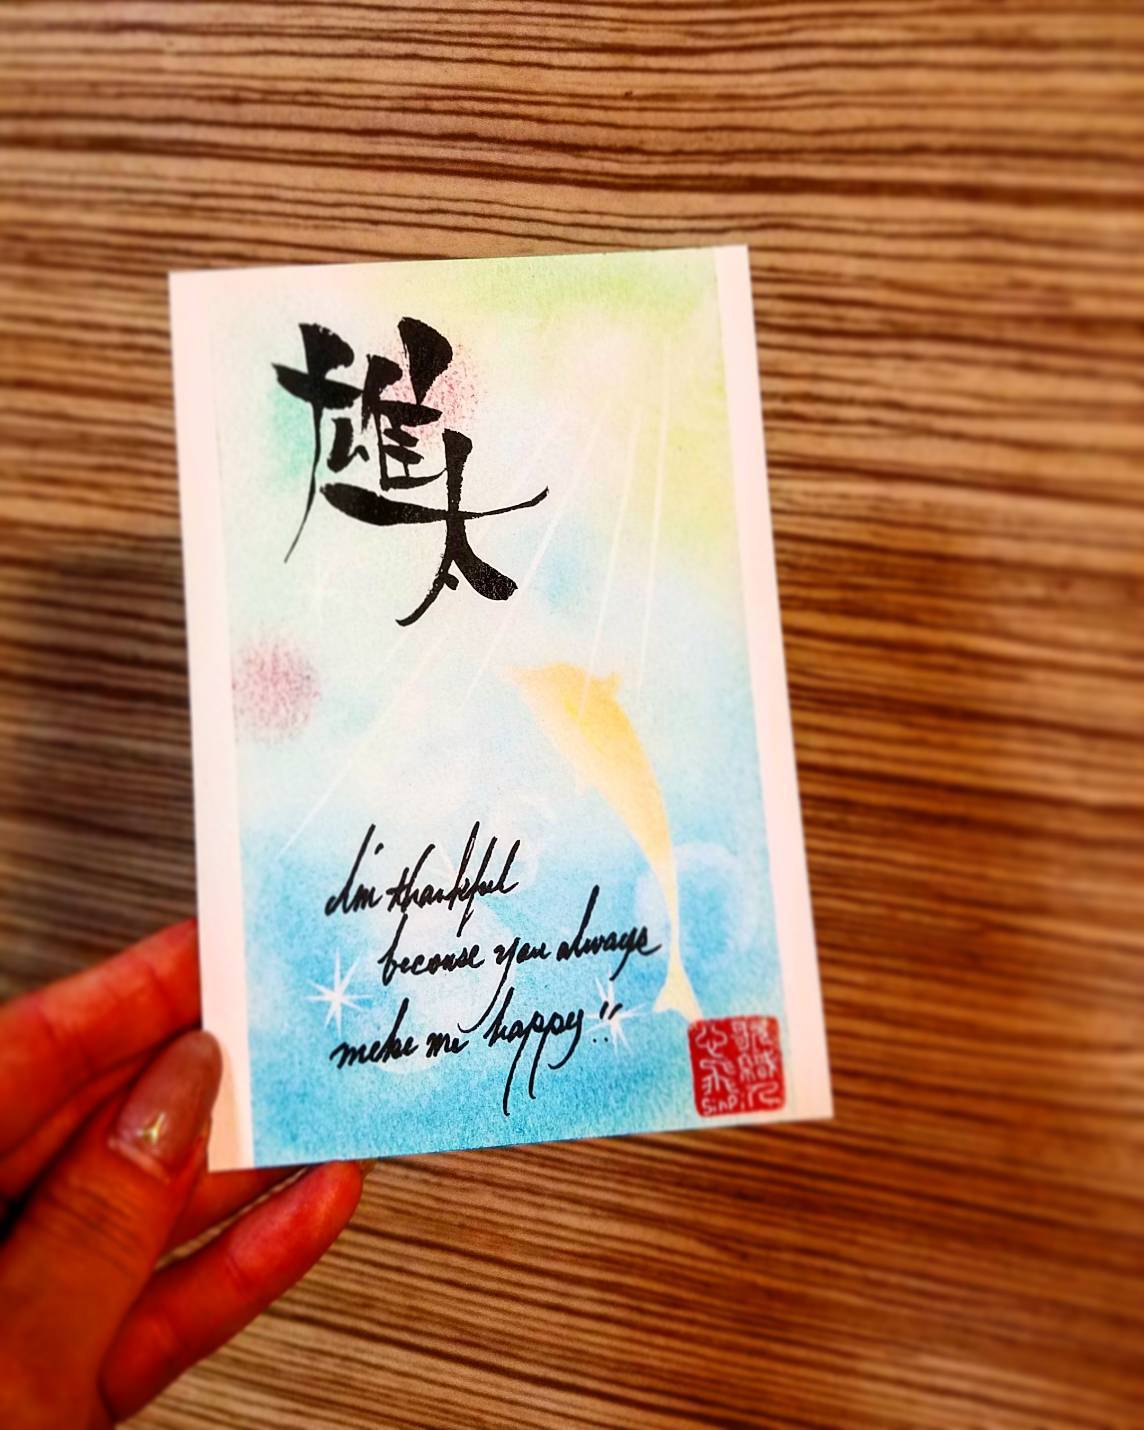 雄太
I'm thankful
because you always
make me happy!!
Sinpi